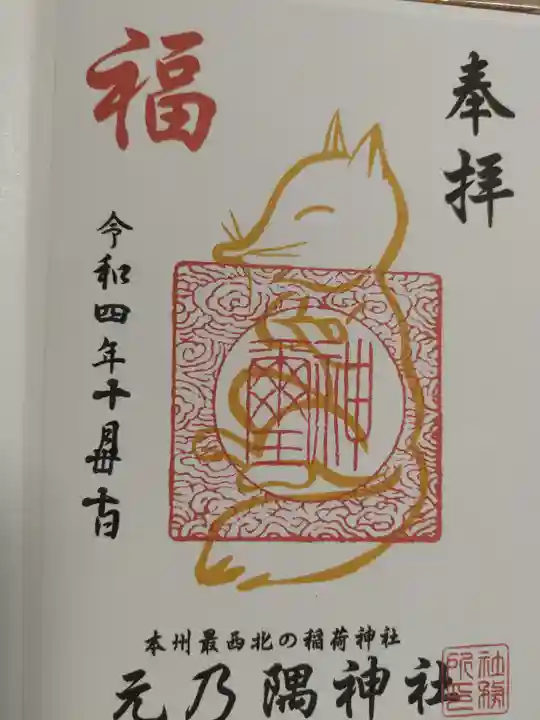 奉拝
福
神璽
令和四年十月
本州最西北の稲荷神社
元乃隅神社
社務所印